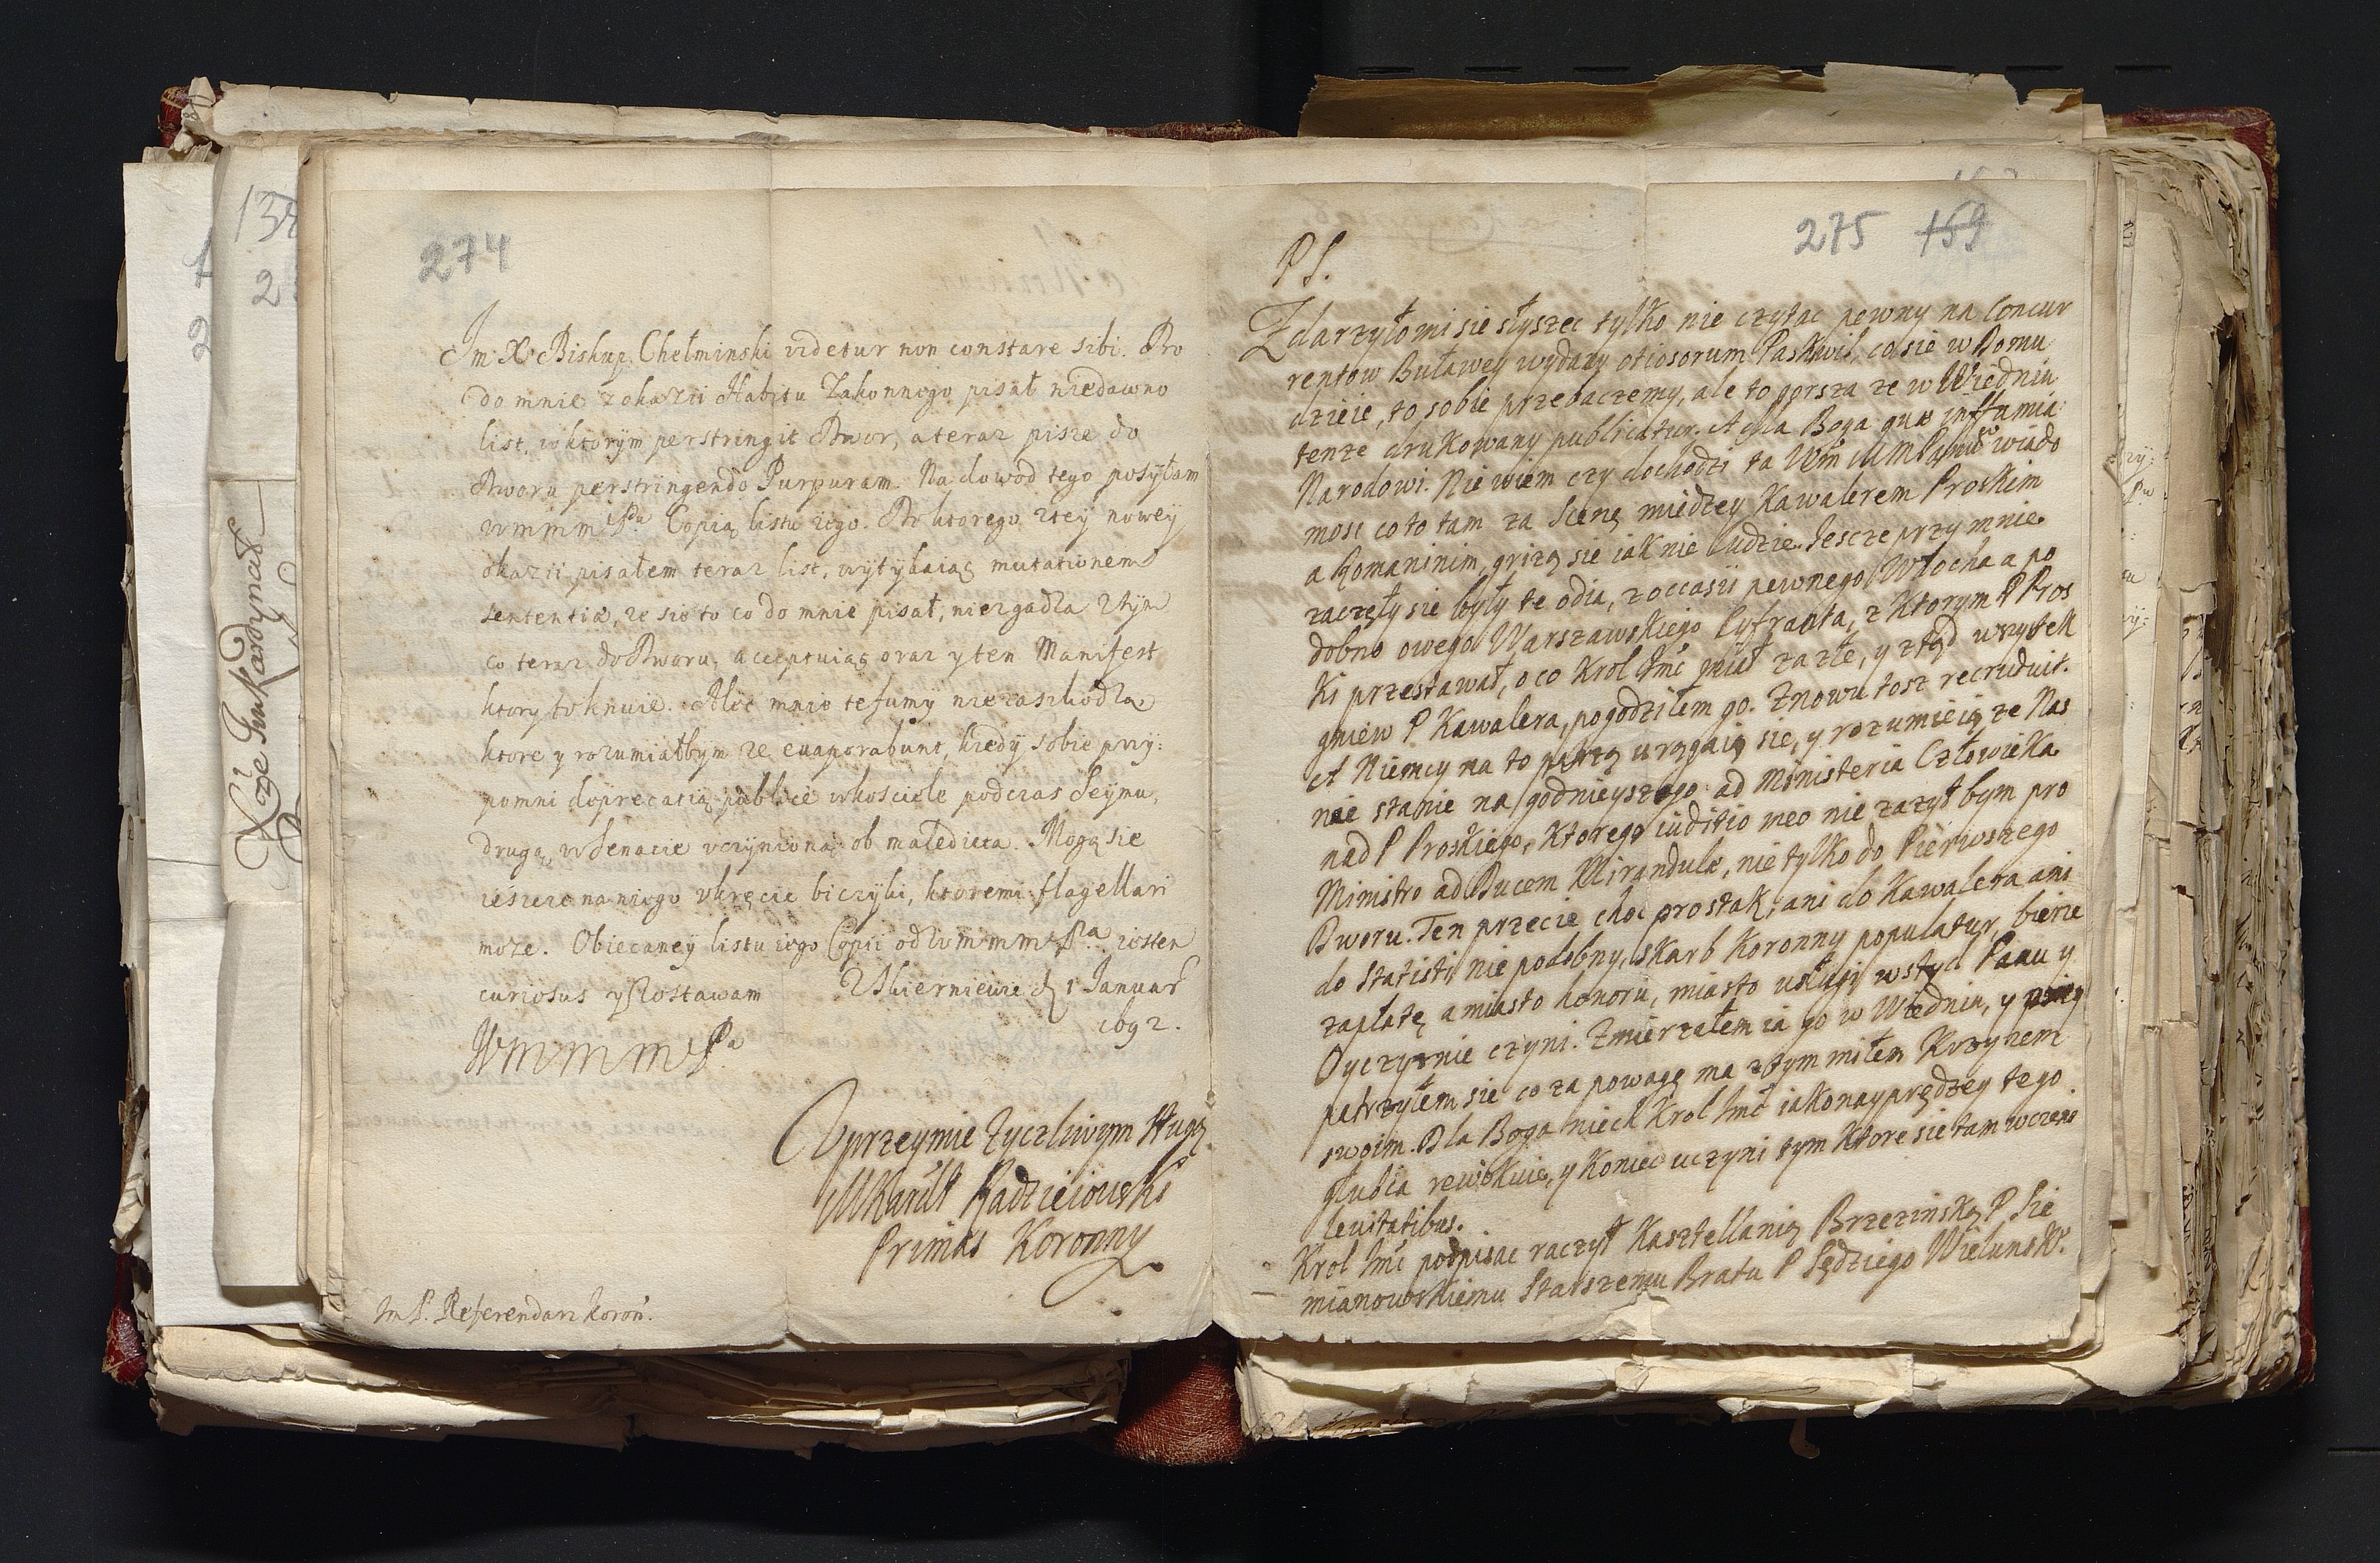 274
Im X Biskup Chełminski videtur non constare sibi. Bo
do mnie z okazii Habitu Zakonnego pisał niedawno
list, w ktorym perstringit Dwor, a teraz pisze do
Dworu perstringendo Purpuram. Na dowod tego posyłam
wmmmPu Copią listu iego. Do ktorego z tey nowey
okazii pisałem teraz list, wytykaiąc mutationem
sententiæ, ze sie to co do mnie pisał, niezgadza z tym
co teraz do Dworu, acceptuiąc oraz y ten Manifest
ktory to knuie. Aloć mnie te fumy niezaszkodzą
ktore y rozumiałbym ze evaporabunt, kiedy sobie przy:
pomni deprecatią publice w kosciele podczas Seymu,
drugą w Senacie uczynioną ob maledicta. Mogą sie
ieszcze na niego ukręcić biczyki, ktoremi flagellari
może. Obiecaney listu iego Copii od wmmmPa iestem
curiosus y zostawam Z Skierniewic d 1 Januar
1692.
WmmmmPa
Uprzeymie zyczliwym sługą
MKardł Radzieiowski
Primas Koronny
Im P. Referendarz Koroń.
138
2
1
2
Xże Imć Kardynał
275 159
PS.
Zdarzyło mi sie słyszec tylko nie czytac pewny na Concur
rentow Buławey wydany otiosorum Paskwil, co sie w Domu
dzieie, to sobie przebaczemy, ale to gorsza ze w Wiedniu
tenze drukowany publicatur. A dla Boga quæ infamia
Narodowi. Nie wiem czy dochodzi ta Wm MMPanu wiado
mosc co to tam za Scenę miedzey Kawalerem Proskim
a Romaninim, grizą sie iak nie ludzie. Iescze przy mnie
zaczęły sie były te odia, z occasii pewnego Włocha a po
dobno owego Warszawskiego Cyfranta, z ktorym P Pros
ki przestawał, o co Krol Jmć miał za złe, y ztąd wszytek
gniew P Kawalera, pogodziłem go. Znowu tosz recruduit.
A Niemcy na to patrzą urągaią sie, y rozumieią ze Nas
nie stanie na godnieyszego ad Ministeria Człowieka
nad P Proskiego, ktorego iuditio meo nie zazył bym pro
Ministro ad Ducem Mirandulæ, nie tylko do Pierwszego
Dworu. Ten przecie choc prostak, ani do Kawalera ani
do Statisti nie podobny, skarb Koronny populatur, bierze
zapłatę a miasto honoru, miasto usługi wstyd Panu y
Oyczyznie czyni. Zmierzałem ia go w Wiedniu, y
patrzyłem sie co za powagę ma z tym miłem Krzyzem
swoim. Dla Boga niech Krol Jmć iako nayprędzey tego
głubia rewokuie, y koniec uczyni tym ktore sie tam wczęło
levitatibus.
Krol Jmć podpisac raczył Kasztellanią Brzezinską P Sie
mianowskiemu Starszemu Bratu P Sędziego Wielunsk: